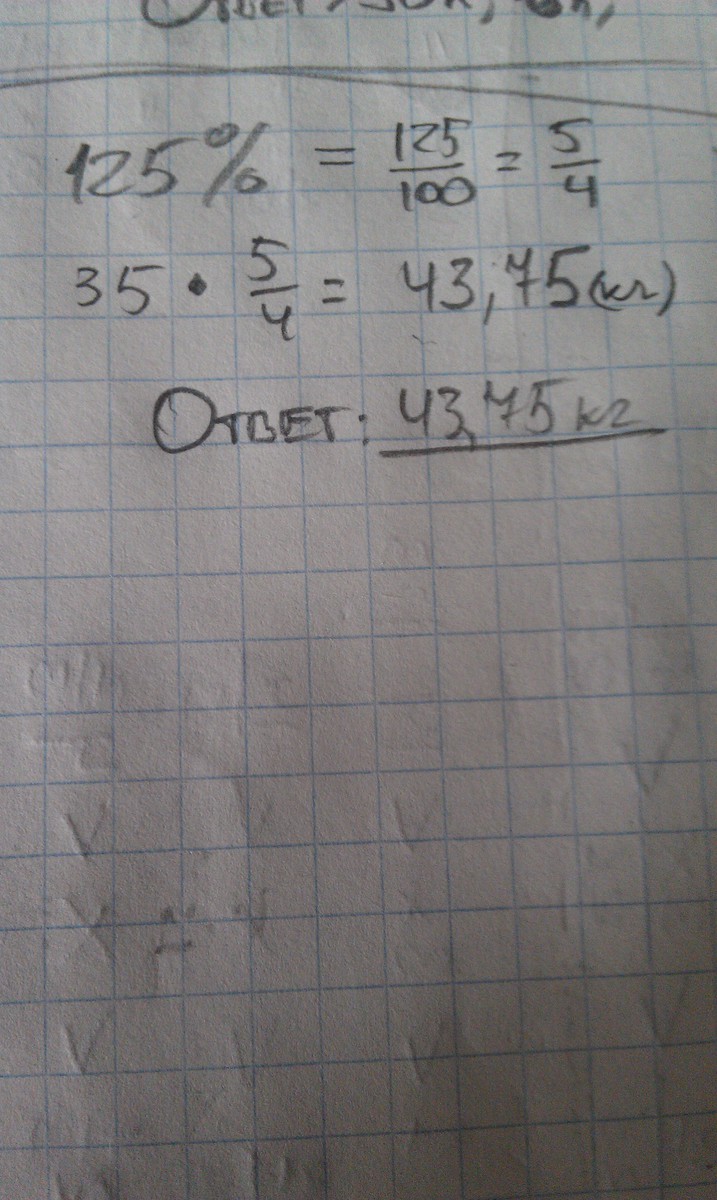 125% = 125/100 = 5/4
35 • 5/4 = 43,75(кг)
Ответ: 43,75 кг